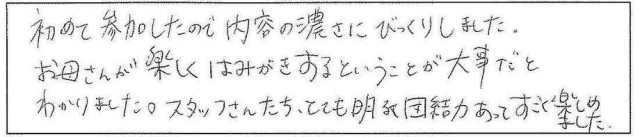 初めて参加したので内容の濃さにびっくりしました。
お母さんが楽しくはみがきするということが大事だと
わかりました。スタッフさんたち、とても明るく団結力あってすごく楽しめ
ました。